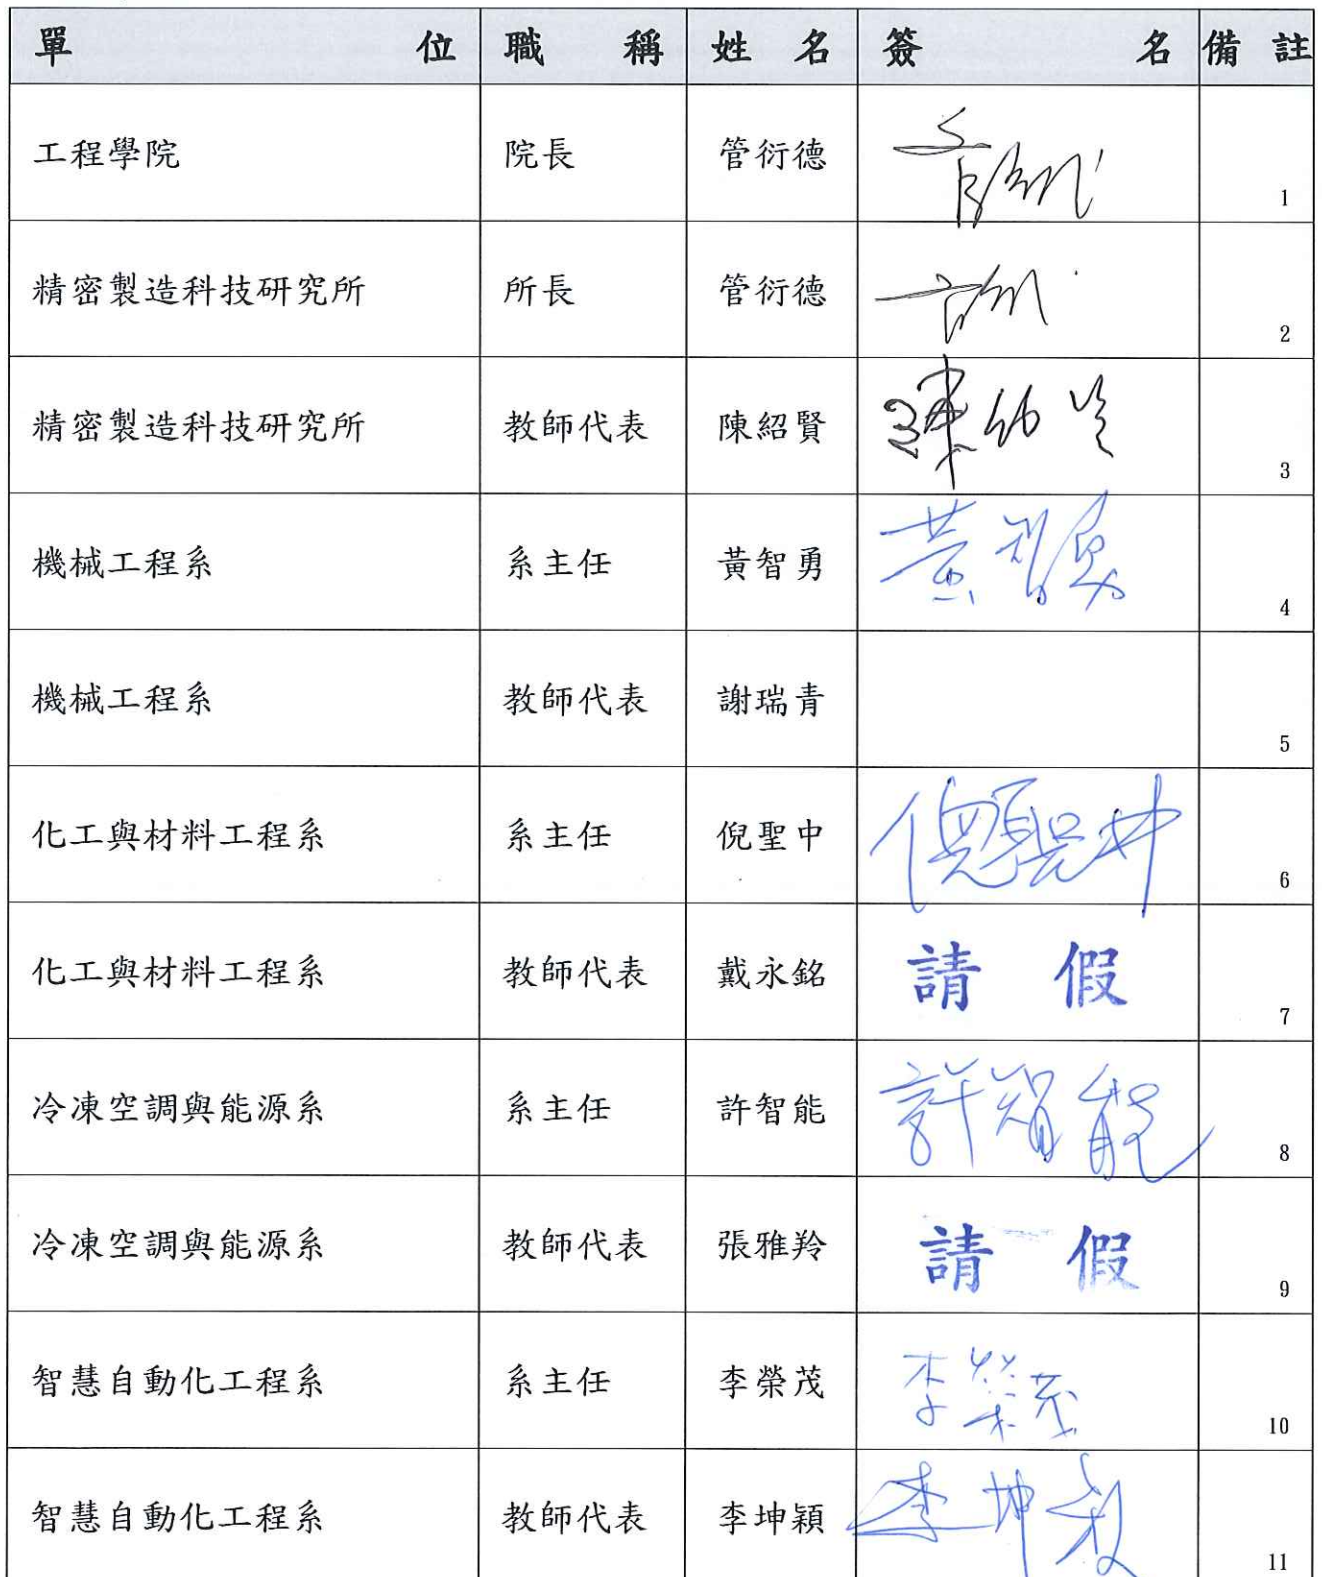 單位 職稱 姓名 簽名 備註
工程學院 院長 管衍德 1
精密製造科技研究所 所長 管衍德 2
精密製造科技研究所 教師代表 陳紹賢 陳紹賢 3
機械工程系 系主任 黃智勇 黃智勇 4
機械工程系 教師代表 謝瑞青 5
化工與材料工程系 系主任 倪聖中 倪聖中 6
化工與材料工程系 教師代表 戴永銘 請假 7
冷凍空調與能源系 系主任 許智能 許智能 8
冷凍空調與能源系 教師代表 張雅羚 請假 9
智慧自動化工程系 系主任 李榮茂 李榮茂 10
智慧自動化工程系 教師代表 李坤穎 李坤穎 11